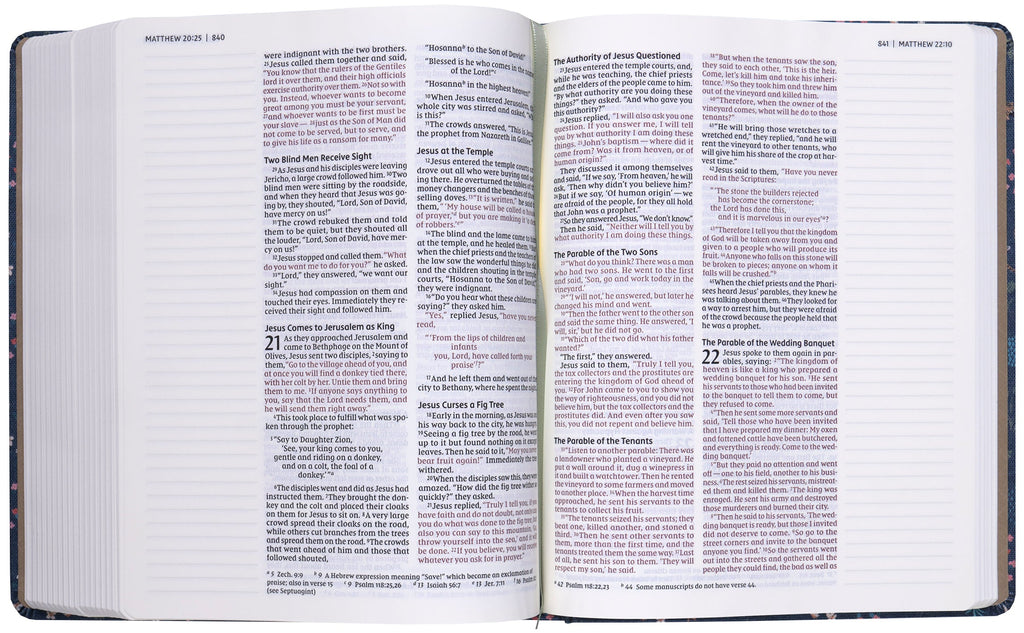 MATTHEW 20:25 | 840
were indignant with the two brothers.
25Jesus called them together and said,
“You know that the rulers of the Gentiles
lord it over them, and their high officials
exercise authority over them. 26Not so with
you. Instead, whoever wants to become
great among you must be your servant,
27and whoever wants to be first must be
your slave — 28just as the Son of Man did
not come to be served, but to serve, and
to give his life as a ransom for many.”
Two Blind Men Receive Sight
29As Jesus and his disciples were leaving
Jericho, a large crowd followed him. 30Two
blind men were sitting by the roadside,
and when they heard that Jesus was go-
ing by, they shouted, “Lord, Son of David,
have mercy on us!”
31The crowd rebuked them and told
them to be quiet, but they shouted all
the louder, “Lord, Son of David, have mer-
cy on us!”
32Jesus stopped and called them. “What
do you want me to do for you?” he asked.
33“Lord,” they answered, “we want our
sight.”
34Jesus had compassion on them and
touched their eyes. Immediately they re-
ceived their sight and followed him.
Jesus Comes to Jerusalem as King
21 As they approached Jerusalem and
came to Bethphage on the Mount of
Olives, Jesus sent two disciples, 2saying to
them, “Go to the village ahead of you, and
at once you will find a donkey tied there,
with her colt by her. Untie them and bring
them to me. 3If anyone says anything to
you, say that the Lord needs them, and
he will send them right away.”
4This took place to fulfill what was spo-
ken through the prophet:
5“Say to Daughter Zion,
‘See, your king comes to you,
gentle and riding on a donkey,
and on a colt, the foal of a
donkey.’”a
6The disciples went and did as Jesus had
instructed them. 7They brought the don-
key and the colt and placed their cloaks
on them for Jesus to sit on. 8A very large
crowd spread their cloaks on the road,
while others cut branches from the trees
and spread them on the road. 9The crowds
that went ahead of him and those that
followed shouted,
“Hosannab to the Son of David!”
“Blessed is he who comes in the name
of the Lord!”c
“Hosannab in the highest heaven!”
10When Jesus entered Jerusalem, the
whole city was stirred and asked, “Who
is this?”
11The crowds answered, “This is Jesus,
the prophet from Nazareth in Galilee.”
Jesus at the Temple
12Jesus entered the temple courts and
drove out all who were buying and sell-
ing there. He overturned the tables of the
money changers and the benches of those
selling doves. 13“It is written,” he said to
them, “‘My house will be called a house
of prayer,’d but you are making it ‘a den
of robbers.’e”
14The blind and the lame came to him
at the temple, and he healed them. 15But
when the chief priests and the teachers of
the law saw the wonderful things he did
and the children shouting in the temple
courts, “Hosanna to the Son of David,”
they were indignant.
16“Do you hear what these children are
saying?” they asked him.
“Yes,” replied Jesus, “have you never
read,
“‘From the lips of children and
infants
you, Lord, have called forth your
praise’f?”
17And he left them and went out of the
city to Bethany, where he spent the night.
Jesus Curses a Fig Tree
18Early in the morning, as Jesus was on
his way back to the city, he was hungry.
19Seeing a fig tree by the road, he went
up to it but found nothing on it except
leaves. Then he said to it, “May you never
bear fruit again!” Immediately the tree
withered.
20When the disciples saw this, they were
amazed. “How did the fig tree wither so
quickly?” they asked.
21Jesus replied, “Truly I tell you, if you
have faith and do not doubt, not only can
you do what was done to the fig tree, but
also you can say to this mountain, ‘Go,
throw yourself into the sea,’ and it will
be done. 22If you believe, you will receive
whatever you ask for in prayer.”
a 5 Zech. 9:9 b 9 A Hebrew expression meaning “Save!” which became an exclamation of
praise; also in verse 15 c 9 Psalm 118:25,26 d 13 Isaiah 56:7 e 13 Jer. 7:11 f 16 Psalm
(see Septuagint)
841 | MATTHEW 22:10
The Authority of Jesus Questioned
23Jesus entered the temple courts, and,
while he was teaching, the chief priests
and the elders of the people came to him.
“By what authority are you doing these
things?” they asked. “And who gave you
this authority?”
24Jesus replied, “I will also ask you one
question. If you answer me, I will tell
you by what authority I am doing these
things. 25John’s baptism — where did it
come from? Was it from heaven, or of
human origin?”
They discussed it among themselves
and said, “If we say, ‘From heaven,’ he will
ask, ‘Then why didn’t you believe him?’
26But if we say, ‘Of human origin’ — we
are afraid of the people, for they all hold
that John was a prophet.”
27So they answered Jesus, “We don’t know.”
Then he said, “Neither will I tell you by
what authority I am doing these things.
The Parable of the Two Sons
28“What do you think? There was a man
who had two sons. He went to the first
and said, ‘Son, go and work today in the
vineyard.’
29“‘I will not,’ he answered, but later he
changed his mind and went.
30“Then the father went to the other son
and said the same thing. He answered, ‘I
will, sir,’ but he did not go.
31“Which of the two did what his father
wanted?”
“The first,” they answered.
Jesus said to them, “Truly I tell you,
the tax collectors and the prostitutes are
entering the kingdom of God ahead of
you. 32For John came to you to show you
the way of righteousness, and you did not
believe him, but the tax collectors and the
prostitutes did. And even after you saw
this, you did not repent and believe him.
The Parable of the Tenants
33“Listen to another parable: There was
a landowner who planted a vineyard. He
put a wall around it, dug a winepress in
it and built a watchtower. Then he rented
the vineyard to some farmers and moved
to another place. 34When the harvest time
approached, he sent his servants to the
tenants to collect his fruit.
35“The tenants seized his servants; they
beat one, killed another, and stoned a
third. 36Then he sent other servants to
them, more than the first time, and the
tenants treated them the same way. 37Last
of all, he sent his son to them. ‘They will
respect my son,’ he said.
38“But when the tenants saw the son,
they said to each other, ‘This is the heir.
Come, let’s kill him and take his inheri-
tance.’ 39So they took him and threw him
out of the vineyard and killed him.
40“Therefore, when the owner of the
vineyard comes, what will he do to those
tenants?”
41“He will bring those wretches to a
wretched end,” they replied, “and he will
rent the vineyard to other tenants, who
will give him his share of the crop at har-
vest time.”
42Jesus said to them, “Have you never
read in the Scriptures:
“‘The stone the builders rejected
has become the cornerstone;
the Lord has done this,
and it is marvelous in our eyes’a?
43“Therefore I tell you that the kingdom
of God will be taken away from you and
given to a people who will produce its
fruit. 44Anyone who falls on this stone will
be broken to pieces; anyone on whom it
falls will be crushed.”b
45When the chief priests and the Phari-
sees heard Jesus’ parables, they knew he
was talking about them. 46They looked for
a way to arrest him, but they were afraid
of the crowd because the people held that
he was a prophet.
The Parable of the Wedding Banquet
22 Jesus spoke to them again in par-
ables, saying: 2“The kingdom of
heaven is like a king who prepared a
wedding banquet for his son. 3He sent
his servants to those who had been invited
to the banquet to tell them to come, but
they refused to come.
4“Then he sent some more servants and
said, ‘Tell those who have been invited
that I have prepared my dinner: My oxen
and fattened cattle have been butchered,
and everything is ready. Come to the wed-
ding banquet.’
5“But they paid no attention and went
off — one to his field, another to his busi-
ness. 6The rest seized his servants, mistreat-
ed them and killed them. 7The king was
enraged. He sent his army and destroyed
those murderers and burned their city.
8“Then he said to his servants, ‘The wed-
ding banquet is ready, but those I invited
did not deserve to come. 9So go to the
street corners and invite to the banquet
anyone you find.’ 10So the servants went
out into the streets and gathered all the
people they could find, the bad as well as
a 42 Psalm 118:22,23 b 44 Some manuscripts do not have verse 44.